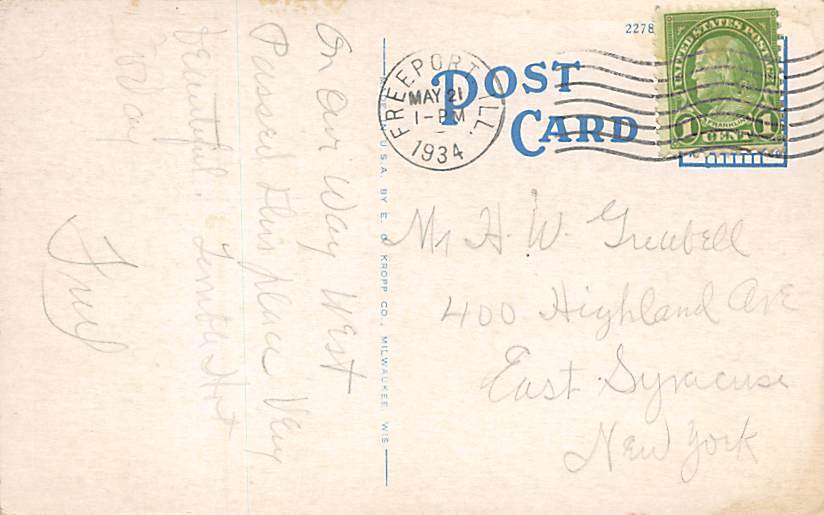 On our Way West
Passed this place Very
beautiful. Terrible Hot
Day
Fred
MADE IN U.S.A. BY E. C. KROPP CO., MILWAUKEE, WIS.
2278
POST
CARD
FREEPORT, ILL.
MAY 21
1-PM
1934
UNITED STATES POSTAGE
FRANKLIN
1 CENT 1
Mr H. W.
400 Highland Ave
East Syracuse
New York